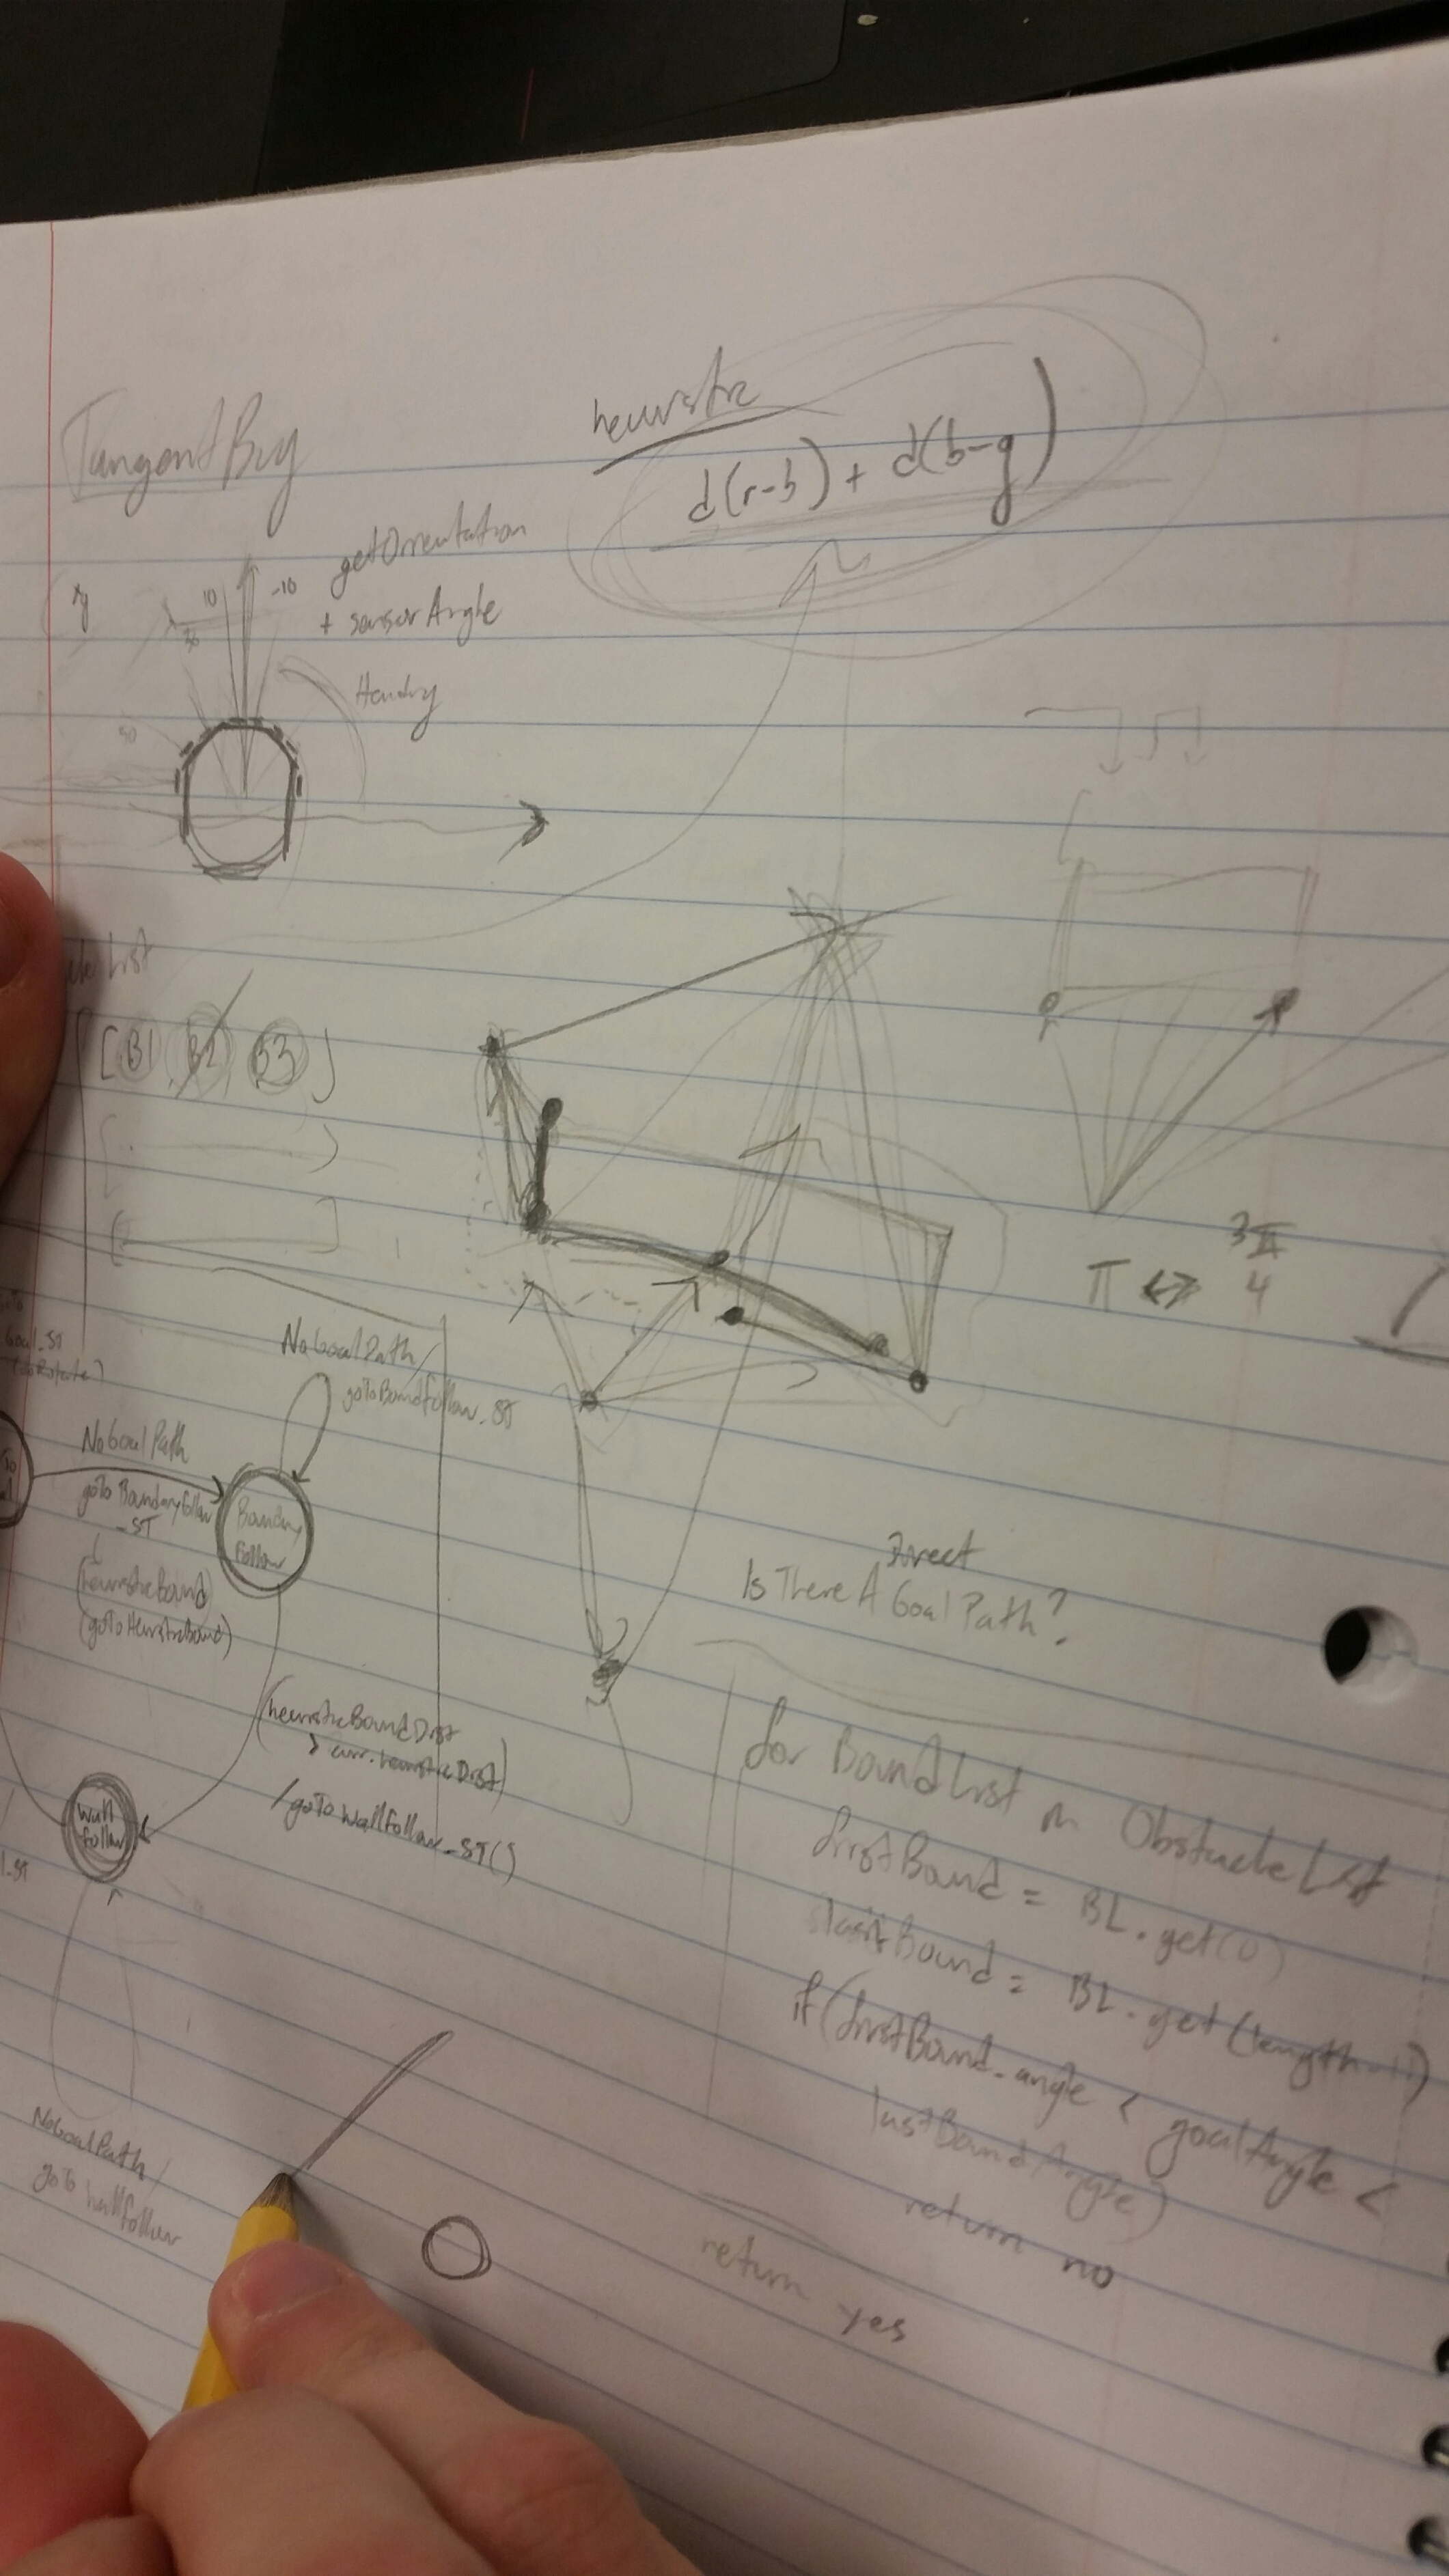 TangentBug
heuristic
d(r-b) + d(b-g)
xy
10
-10
30
50
getOrientation
+ sensorAngle
Heading
List
[B1 B2 B3]
π <-> 3π
4
Goal_ST
NoGoalPath/
goToBoundFollow_ST
NoGoalPath
goToBoundaryFollow
_ST
Boundary
Follow
(heuristicBound)
(goToHeuristicBound)
(heuristicBoundDist
> curr.heuristicDist)
/goToWallFollow_ST()
Wall
follow
NoGoalPath/
goTo Wallfollow
Direct
Is There A Goal Path?
for BoundList in ObstacleList
firstBound = BL.get(0)
lastBound = BL.get(length-1)
if(firstBound.angle < goalAngle <
lastBoundAngle)
return no
return yes